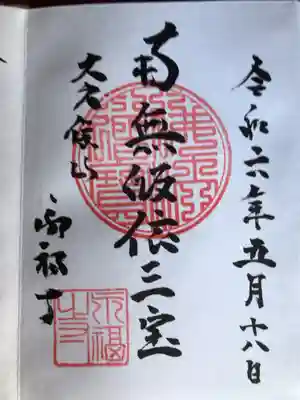 令和六年五月十八日
南無皈依三宝
大久保山
永福寺
永福